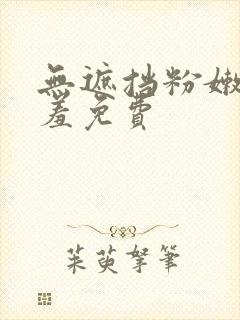 無遮挡粉嫩
羞免費
茱萸拏筆